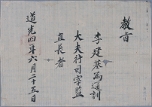 教旨
李建榮爲通訓
大夫行司宰監
直長者
道光四年六月二十五日